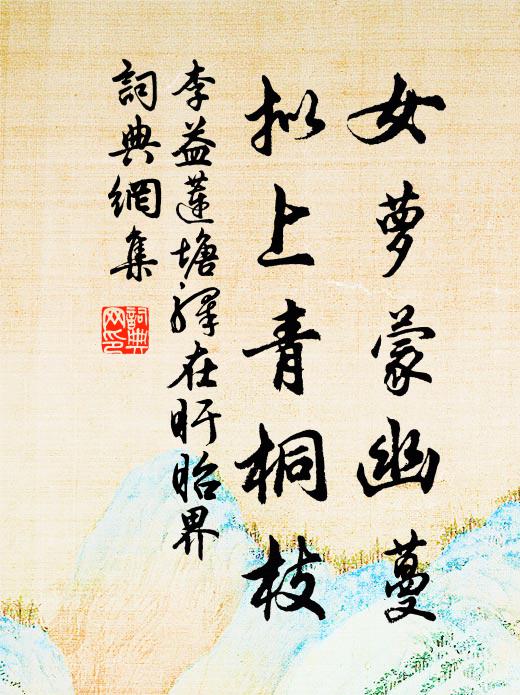 女萝蒙幽蔓
拟上青桐枝
李益蓮塘驛在盱眙界
詞典網集
詞典
网印